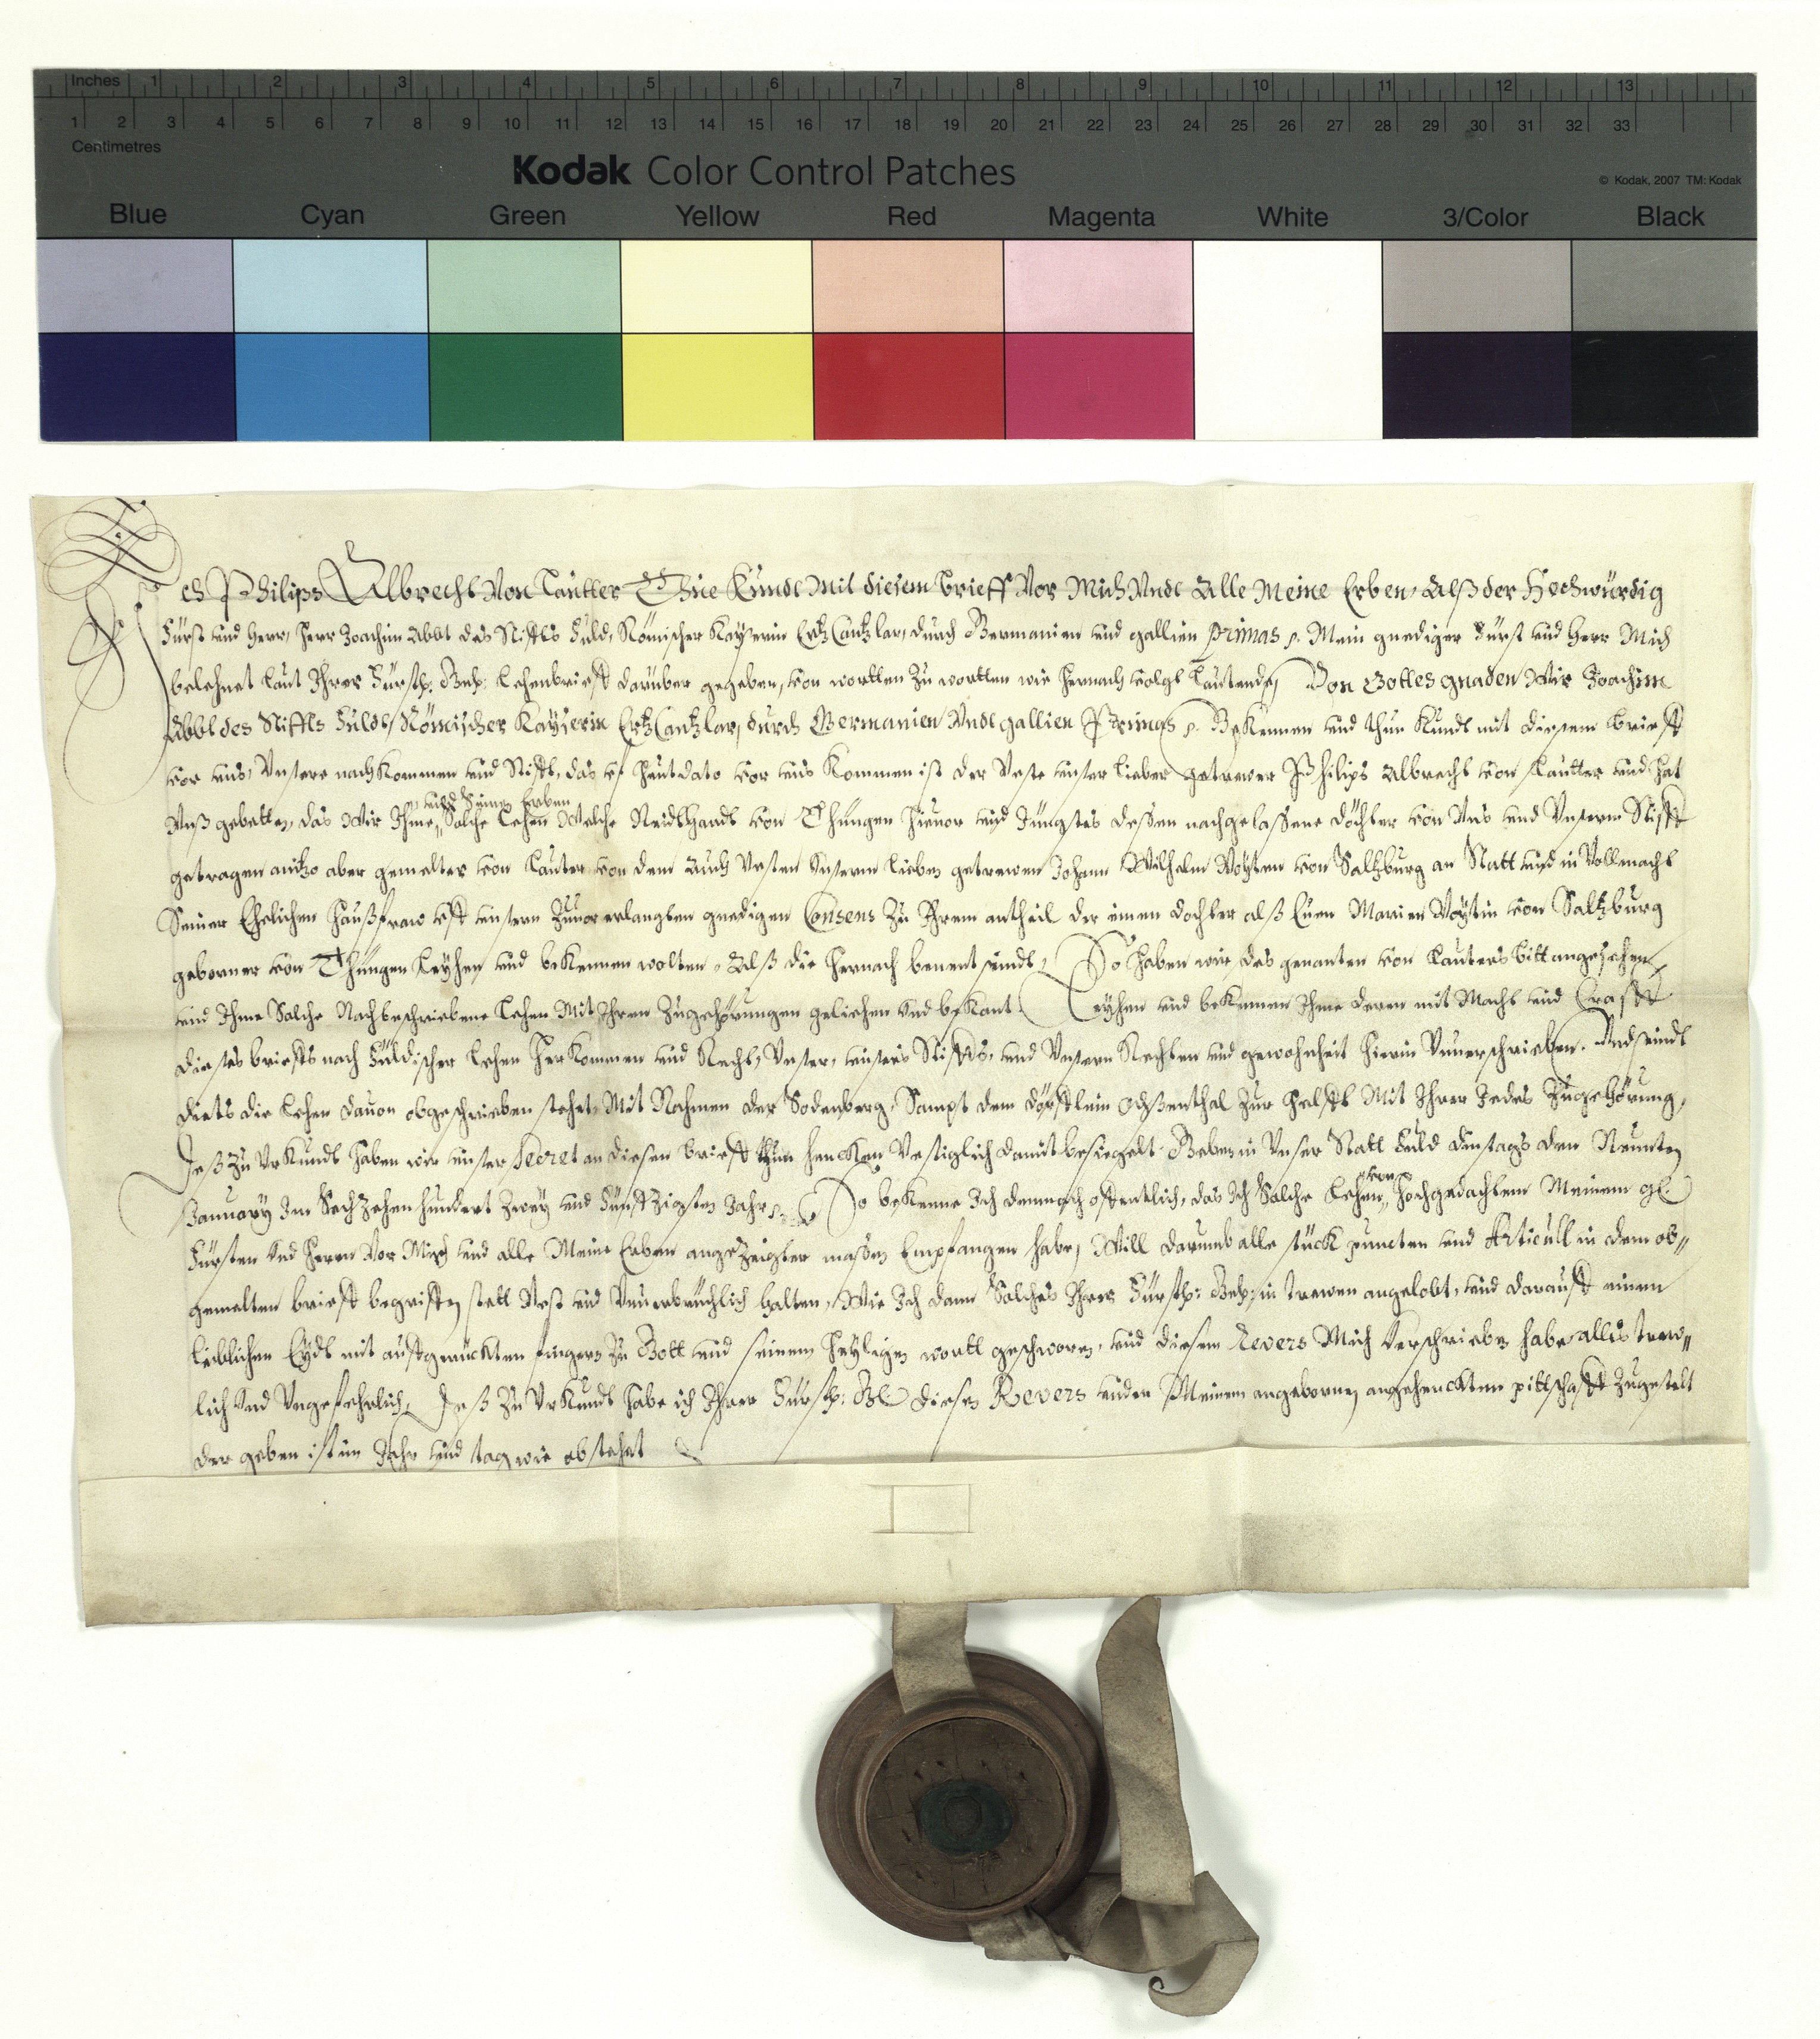 Inches 1 2 3 4 5 6 7 8 9 10 11 12 13
1 2 3 4 5 6 7 8 9 10 11 12 13 14 15 16 17 18 19 20 21 22 23 24 25 26 27 28 29 30 31 32 33
Centimetres
Kodak Color Control Patches
© Kodak, 2007 TM: Kodak
Blue Cyan Green Yellow Red Magenta White 3/Color Black
Ich Philips Albrecht Von Lautter Thue Kundt Mit diesem brieff Vor Mich Vndt Alle Meine Erben, Alß der Hochwürdig
Fürst und Herr, Herr Joachim Abbt des Stiffts Fuld, Römischer Kayserin ErtzCantzlar, durch Germanien und gallien primas p. Mein gnediger Fürst und Herr Mich
belehnet laut Ihrer Fürstl: Gnd: Lehenbrieff darüber gegeben, von wortten zu wortten wie hernach volgt lautende, Von Gottes gnaden Wir Joachim
Abbt des Stiffts Fuldt, Römischer Kayserin ErtzCantzlar, durch Germanien Vndt gallien Primas p. Bekennen und thun Kundt mit diesem brieff
vor uns, Unsere nachkommen und Stifft, das uf heut dato vor uns kommen ist der Veste unser lieber getrewer Philips Albrecht von Lautter und hat
Unß gebetten, das Wir Ihme, und Seinen Erben Solche Lehen Welche Neidthardt von Thüngen hieuor und Jüngstes dessen nachgelassene döchter von Uns und Unserm Stifft
getragen anitzo aber gemelter von Lauter von dem auch Vesten Unserm lieben getrewen Johann Wilhelm Voyten von Saltzburg an Statt und in Vollmacht
Seiner Ehelichen Haußfraw uff unsern zuuor erlangten gnedigen Consens zu Ihrem antheil der einen dochter alß Euen Marien Voytin von Saltzburg
geborner von Thüngen Leyhen und bekennen wolten, Alß die hernach benent seindt, So haben wir des genanten von Lauters bitt angesehen,
und Ihme Solche Nachbeschriebene Lehen Mit Ihren Zugehörungen geliehen und bekant Leyhen und bekennen Ihme deren mit Macht und Crafft
dieses brieffs nach Fuldischer Lehen Herkommen und Recht, Unser, unsers Stiffts, und Unsern Rechten und gewohnheit hierin Unuerschrieben. Und seindt
diets die Lehen dauon obgeschrieben stehet, Mit Nahmen der Sodenberg, Sampt dem dörfflein Ochßenthal zur helfft Mit Ihrer Jedes Zugehörung,
Deß zu Urkundt haben wir unser Secret an diesen brieff thun hencken Vestiglich damit besiegelt. Geben in Unser Statt Fuld dinstags den Neunten
January Im Sechzehen hundert Zwey und Fünffzigsten Jahr. So bekenne Ich demnach offentlich, das Ich Solche Lehen, von Hochgedachtem Meinem gl.
Fürsten und Herrn Vor Mich und alle Meine Erben angezeigter masen Empfangen habe, Will darumb alle stück puncten und Articull in dem ob„
gemelten brieff begriffen stett Vest und Unuerbrüchlich halten, Wie Ich dann Solches Ihrer Fürstl: Gnd: in trewen angelobt, und darauff einen
leiblichen Eydt mit auffgerückten fingern zu Gott und seinem heyligen wortt geschworn, und diesem Revers Mich Verschrieben habe alles trew„
lich und Ungefehrlich, Deß zu Urkundt habe ich Ihrer Fürstl: Gl dieses Revers under Meinem angebornen angehenckten pittschafft zugestelt
der geben ist im Jahr und tag wie obstehet